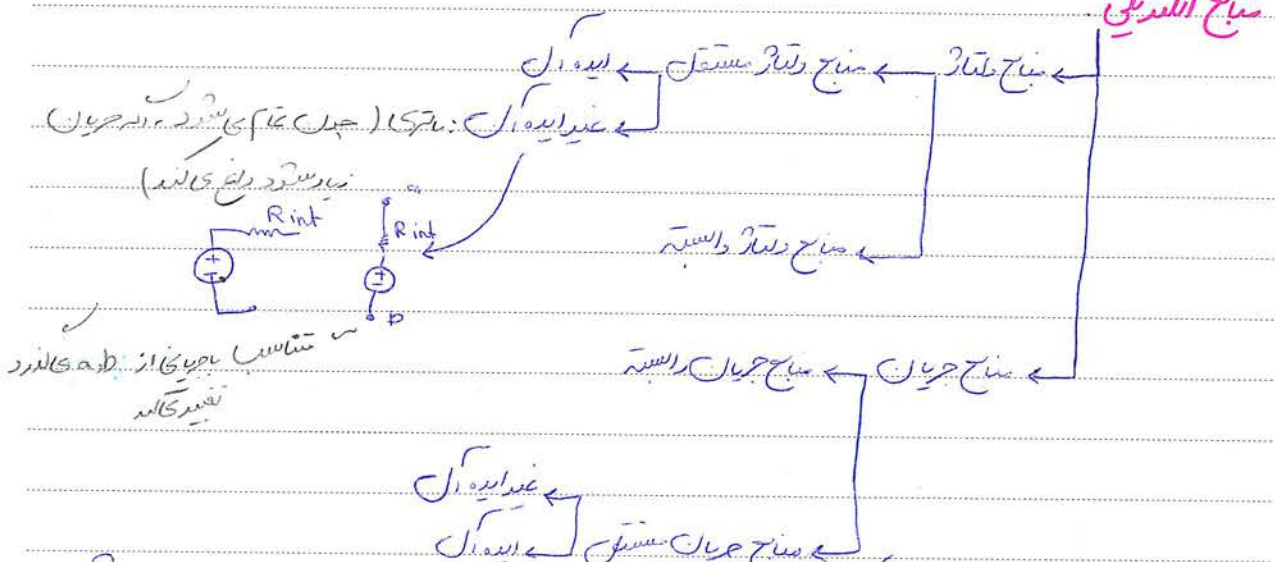 منابع الکتریکی
منابع ولتاژ ← منابع ولتاژ مستقل ← ایده‌آل
غیر ایده‌آل: باتری (چون تمام می‌شود، اگر جریان
زیاد شود داغ می‌کند)
a
Rint
Rint
منابع ولتاژ وابسته
b
متناسب با جریانی از a و b می‌گذرد
تغییر می‌کند
منابع جریان ← منابع جریان وابسته
غیر ایده‌آل
منابع جریان مستقل ← ایده‌آل